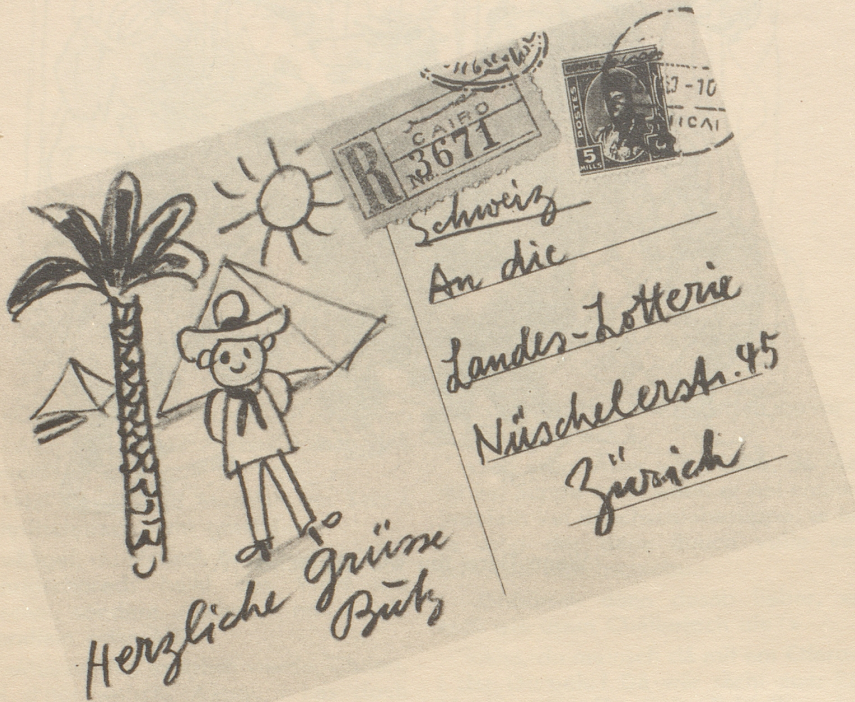 R
CAIRO
No. 3671
POSTES
5
MILLS
-10
Schweiz
An die
Landes-Lotterie
Nüschelerstr. 45
Zürich
Herzliche Grüsse
Butz